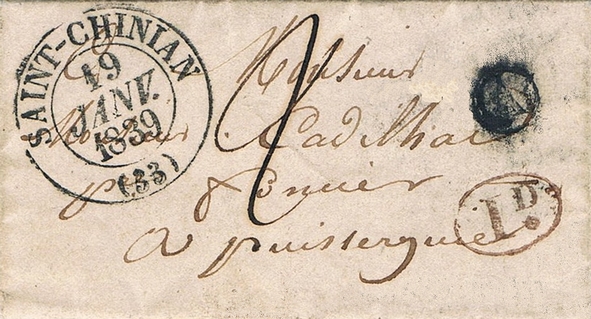 SAINT-CHINIAN
19
JANV.
1839
(33)
2
Monsieur
Monsieur Cadilhac
fermier
a puisserguier
1 D.